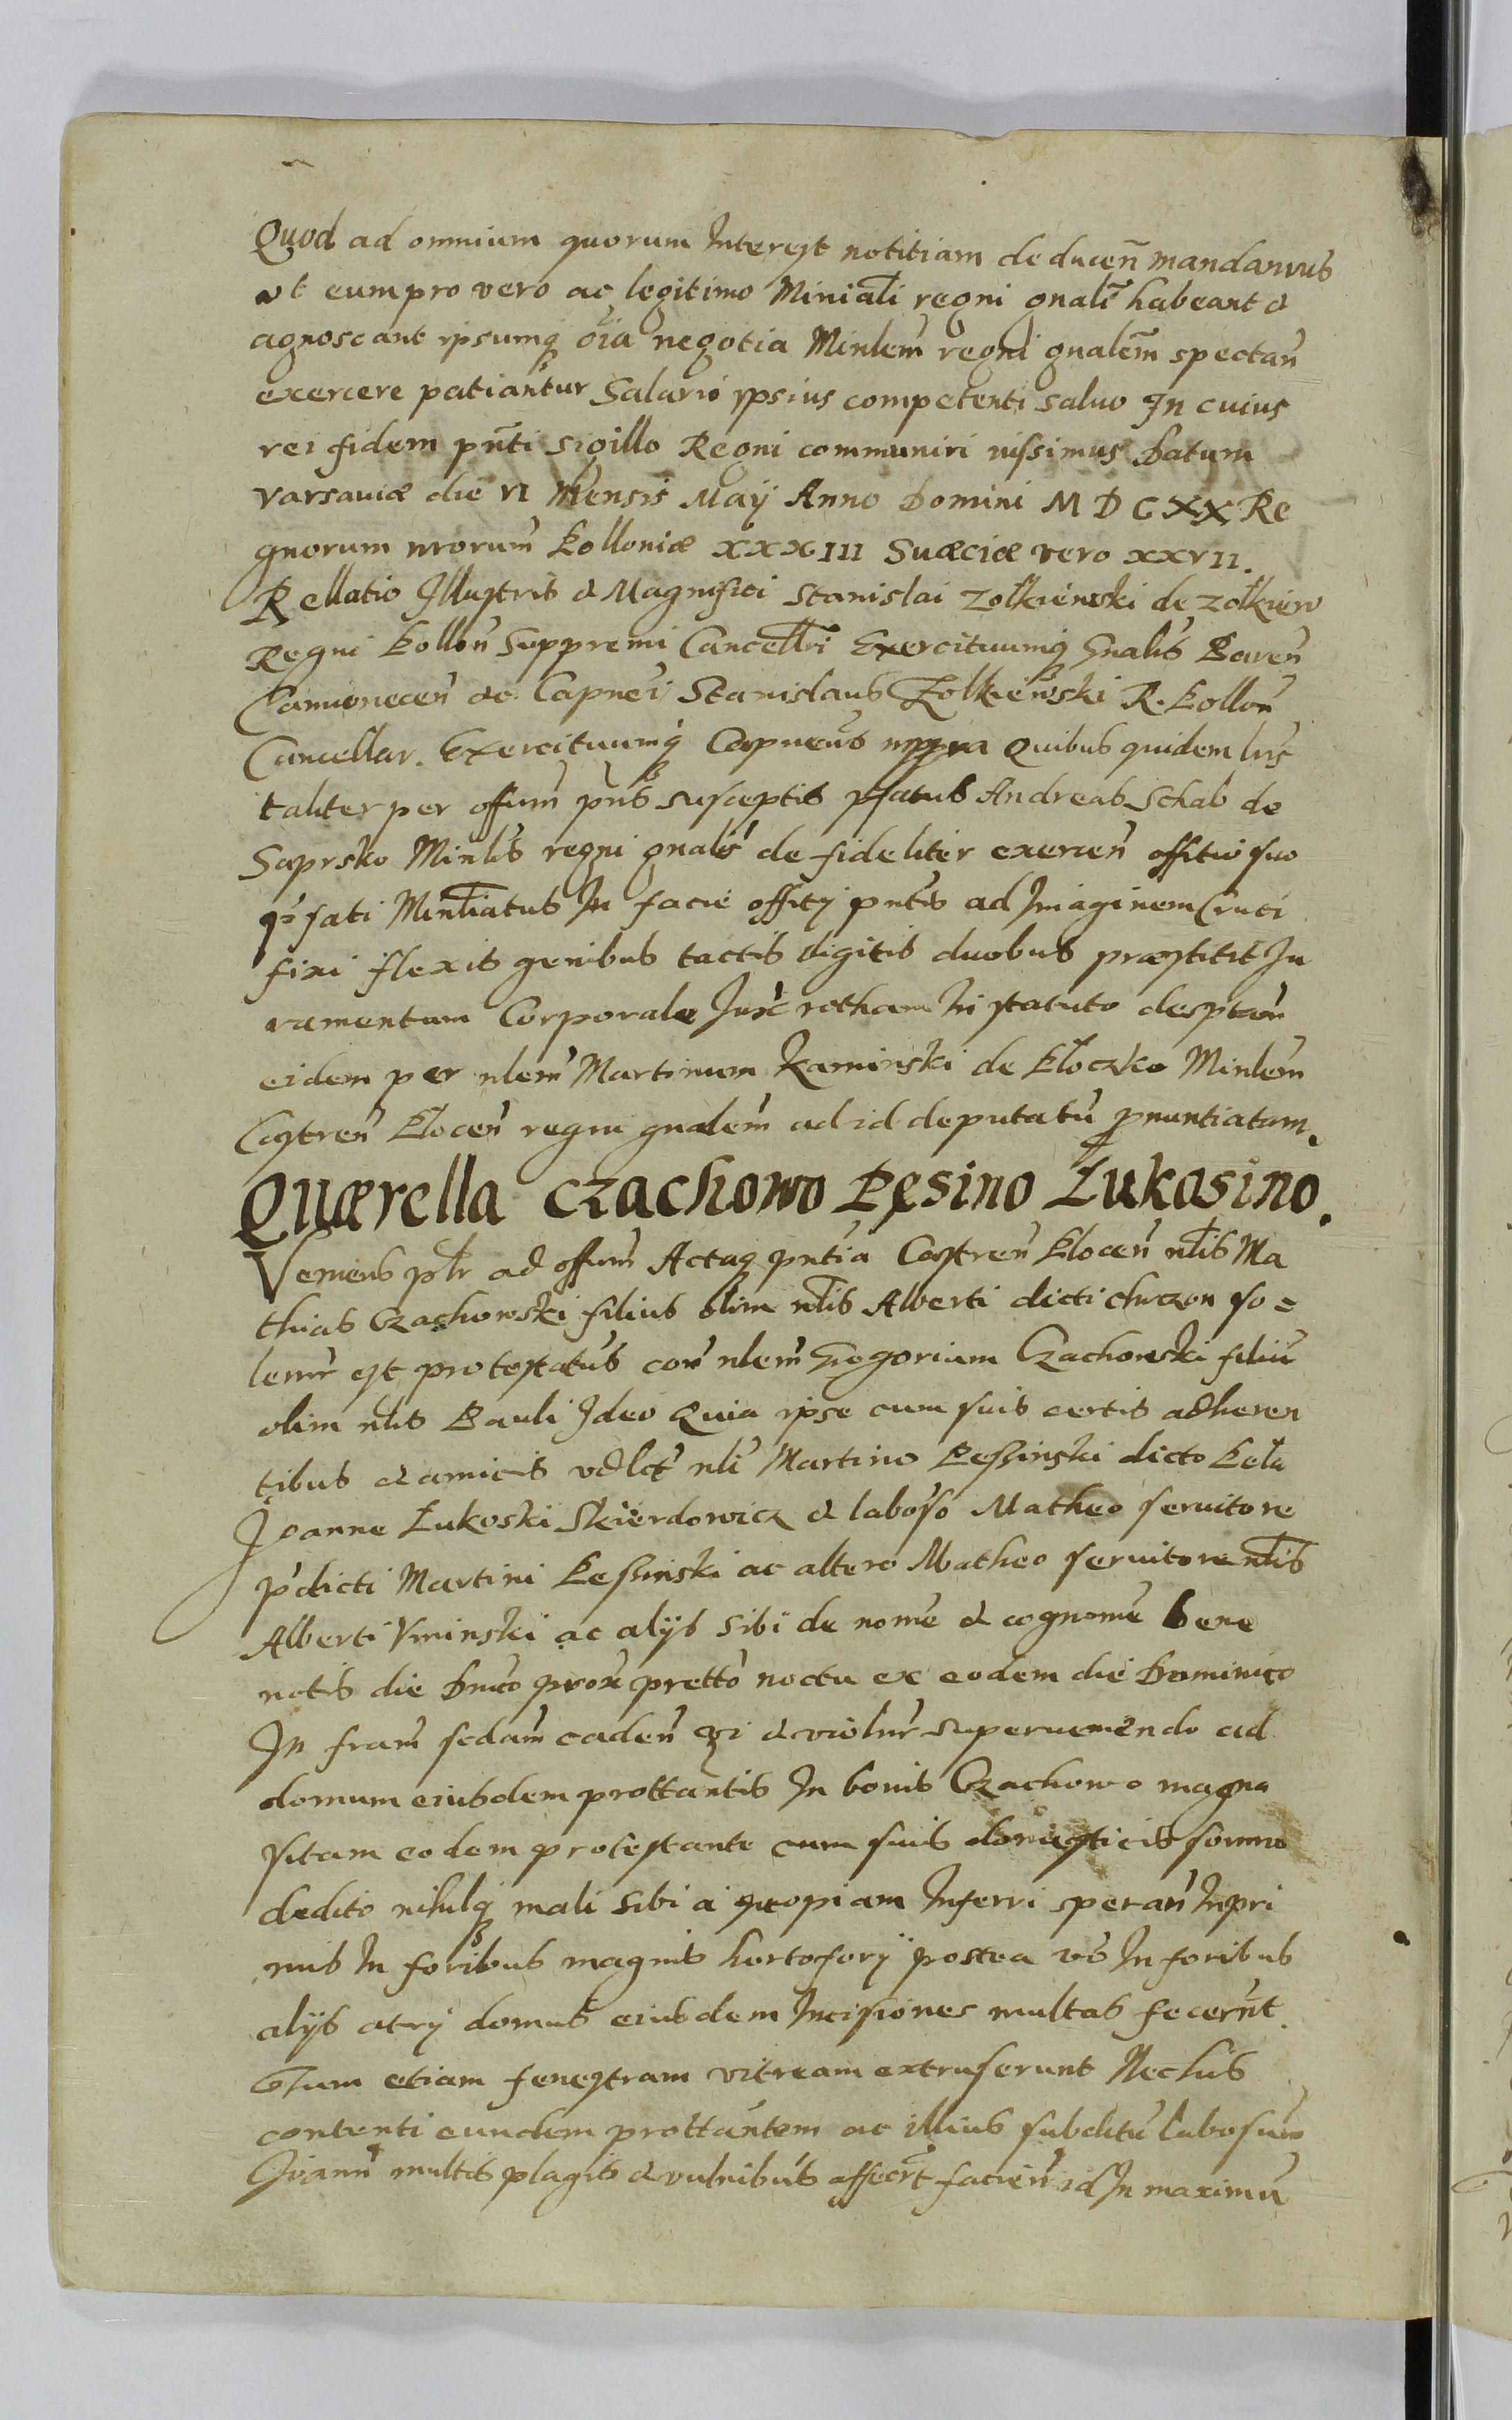 Quod ad omnium quorum Interest notitiam deducen̄ mandamus
ut eum pro vero ac legitimo Miniali regni gnali habeant &
agnoscant ipsumq oīa negotia Minlem regni gnalem spectan̄
exercere patiantur Salario ipsius competenti saluo In cuius
rei fidem pn̄ti sigillo Regni communiri iussimus Datum
Varsauiæ die VI Mensis Maÿ Anno Domini M D C XX Re
gnorum nrorum Polloniæ XXXIII Suæciæ vero XXVII.
Rellatio Illustris & Magnifici Stanislai Zolkiewski de Zolkiew
Regni Pollon̄ Suppremi Cancellri Exercituumq Gnalis Baren̄
Camionecen̄ &c Capnei Stanislaus Zolkiewski R. Pollon̄
Cancellar. Exercituumq Capneus mppra Quibus quidem lris
taliter per offum pn̄s susceptis pfatus Andreas Schab de
Saprsko Minlis regni gnalis de fideliter exercen̄ offitio suo
pfati Minliatus In facie offitÿ pntis ad Imaginem Cruci
fixi flexis genibus tactis digitis duobus præstitit Iu
ramentum Corporale Iux rotham In statuto desptam
eidem per nlem Martinum Kaminski de Ploczko Minlem
Castren̄ Plocen̄ regni gnalem ad id deputatū pnuntiatam.
Quærella Czachowo Pęsino Łukosino.
Veniens pltr ad offum Actaq pntia Castren̄ Plocen̄ nlis Ma
thias Czachowski filius olim nlis Alberti dicti chrzon so=
lenr est protestatus con nlem Gregorium Czachowski filiū
olim nlis Pauli Ideo Quia ipse cum suis certis adheren
tibus & amicis vdlct nli Martino Pessinski dicto Pela
Joanne Łukoski Skierdowicz & laboso Matheo seruitore
pdicti Martini Pessinski ac altero Matheo seruitore nlis
Alberti Vminski ac alijs sibi de nome & cognome bene
notis die Dnico prox pretto noctu ex eodem die Dominico
In fram scdam caden̄ vi & violnr superueniendo ad
domum eiusdem prottantis In bonis Czachowo magna
sitam eodem protestante cum suis domesticis somno
dedito nihilq mali sibi a qtopiam Inferri speran̄ Inpri
mis In foribus magnis hortoforÿ postea vo In foribus
alijs atrÿ domus eiusdem Incisiones multas fecerūt
Tum etiam fenestram vitream extruserunt Nec his
contenti eundem prottantem ac illius subditū labosum
Joann̄ multis plagis & vulnibus affecrt facien̄ id In maximū